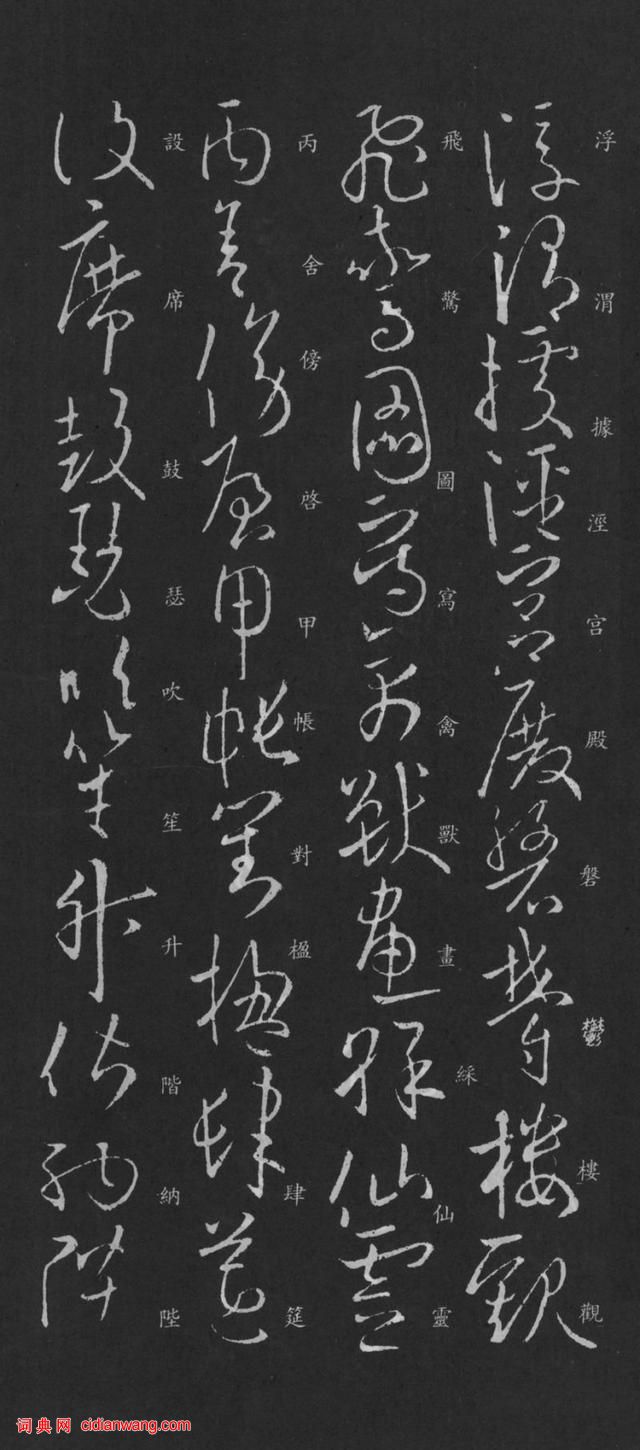 浮渭據涇宮殿磐鬱樓觀
飛驚圖寫禽獸畫綵仙靈
丙舍傍啓甲帳對楹肆筵
設席鼓瑟吹笙升階納陛
词典网 cidianwang.com